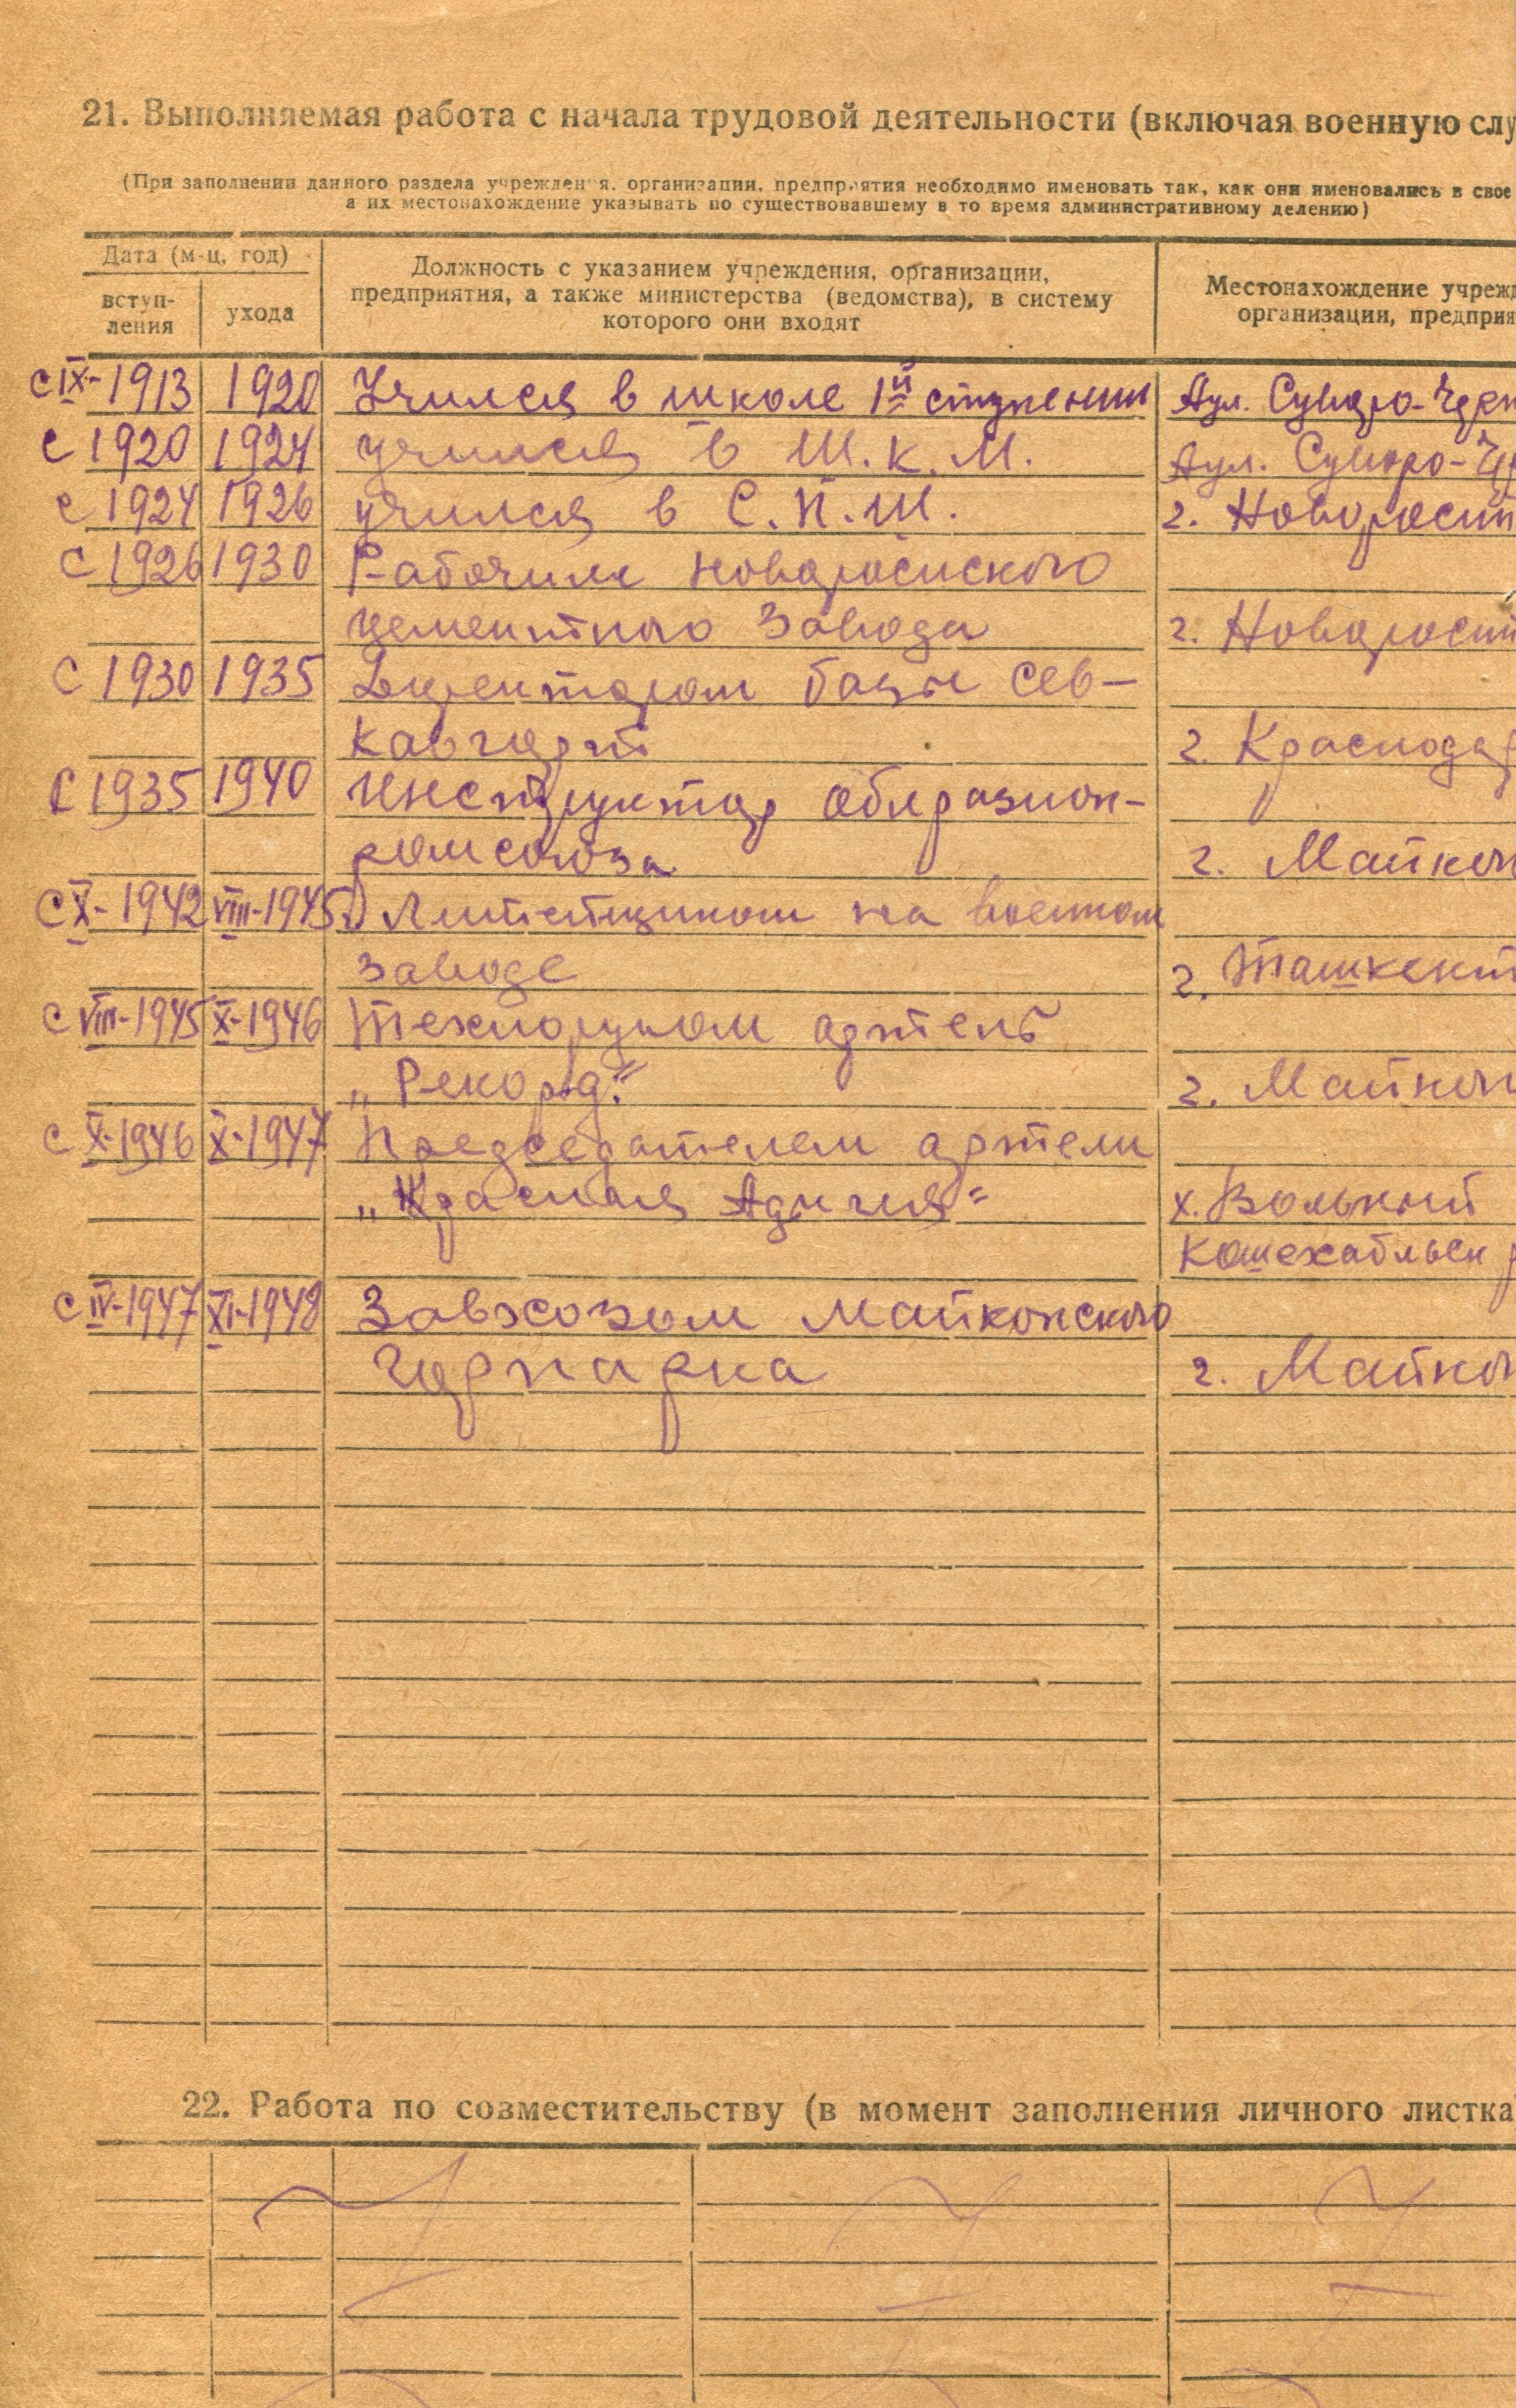 21. Выполняемая работа с начала трудовой деятельности (включая военную слу
(При заполнении данного раздела учреждения, организации, предприятия необходимо именовать так, как они именовались в свое
а их местонахождение указывать по существовавшему в то время административному делению)
Дата (м-ц, год)
вступ-
ления
ухода
Должность с указанием учреждения, организации,
предприятия, а также министерства (ведомства), в систему
которого они входят
Местонахождение учрежд
организации, предприя
с IX-1913 1920 Учился в школе 1й ступени Аул.
с 1920 1924 учился в Ш.К.М. Аул.
с 1924 1926 учился в С.П.Ш. г. Новоросси
с 1926 1930 Рабочим новоросийского
цементного завода г. Новоросий
с 1930 1935 Директором базы Сев-
кав г. Краснодар
с 1935 1940 Инструктор
г. Майкоп
с X-1942 VIII-1945 на военном
заводе г. Ташкент
с VIII-1945 X-1946 Техноруком артель
„Рекорд" г. Майкоп
с X-1946 X-1947 Председателем артели
„Красная Адыгея" х. Вольный
Кошехабльск р
с IV-1947 XI-1948 Завхозом Майкопского
горпарка г. Майкоп
22. Работа по совместительству (в момент заполнения личного листка)